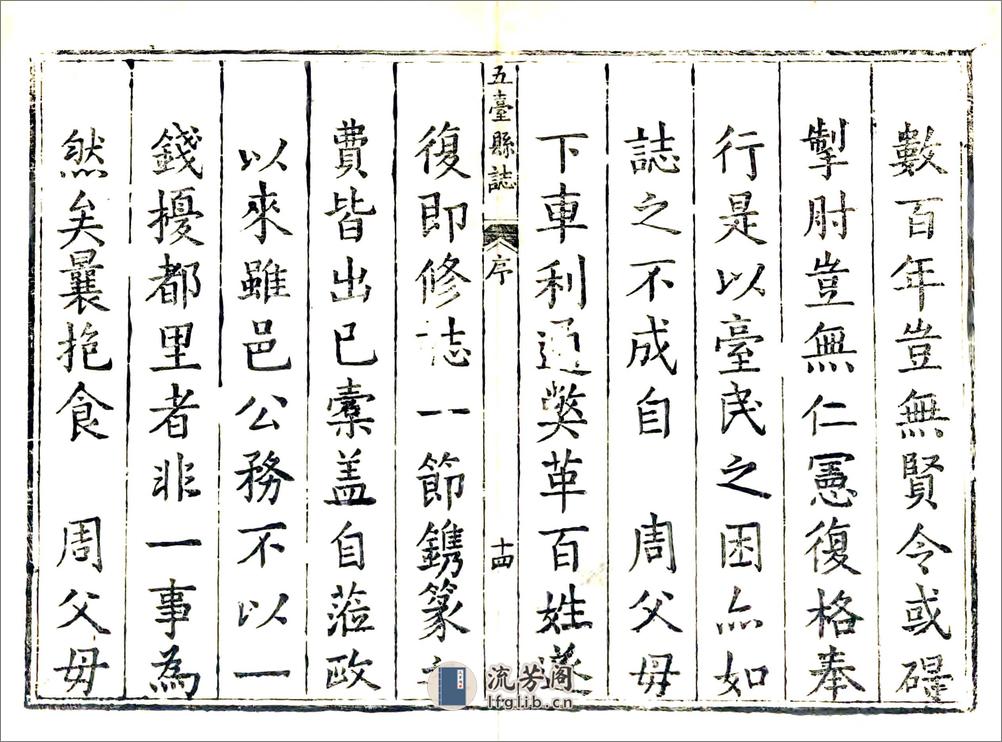 數百年豈無賢令或礙
掣肘豈無仁憲復格奉
行是以臺民之困亦如
誌之不成自　周父母
下車利通獘革百姓遂
復即修誌一節鐫篆
五臺縣誌　序　十四
費皆出已橐盖自蒞政
以來雖邑公務不以一
錢擾都里者非一事為
然矣曩抱食　周父母
流芳阁
lfglib.cn